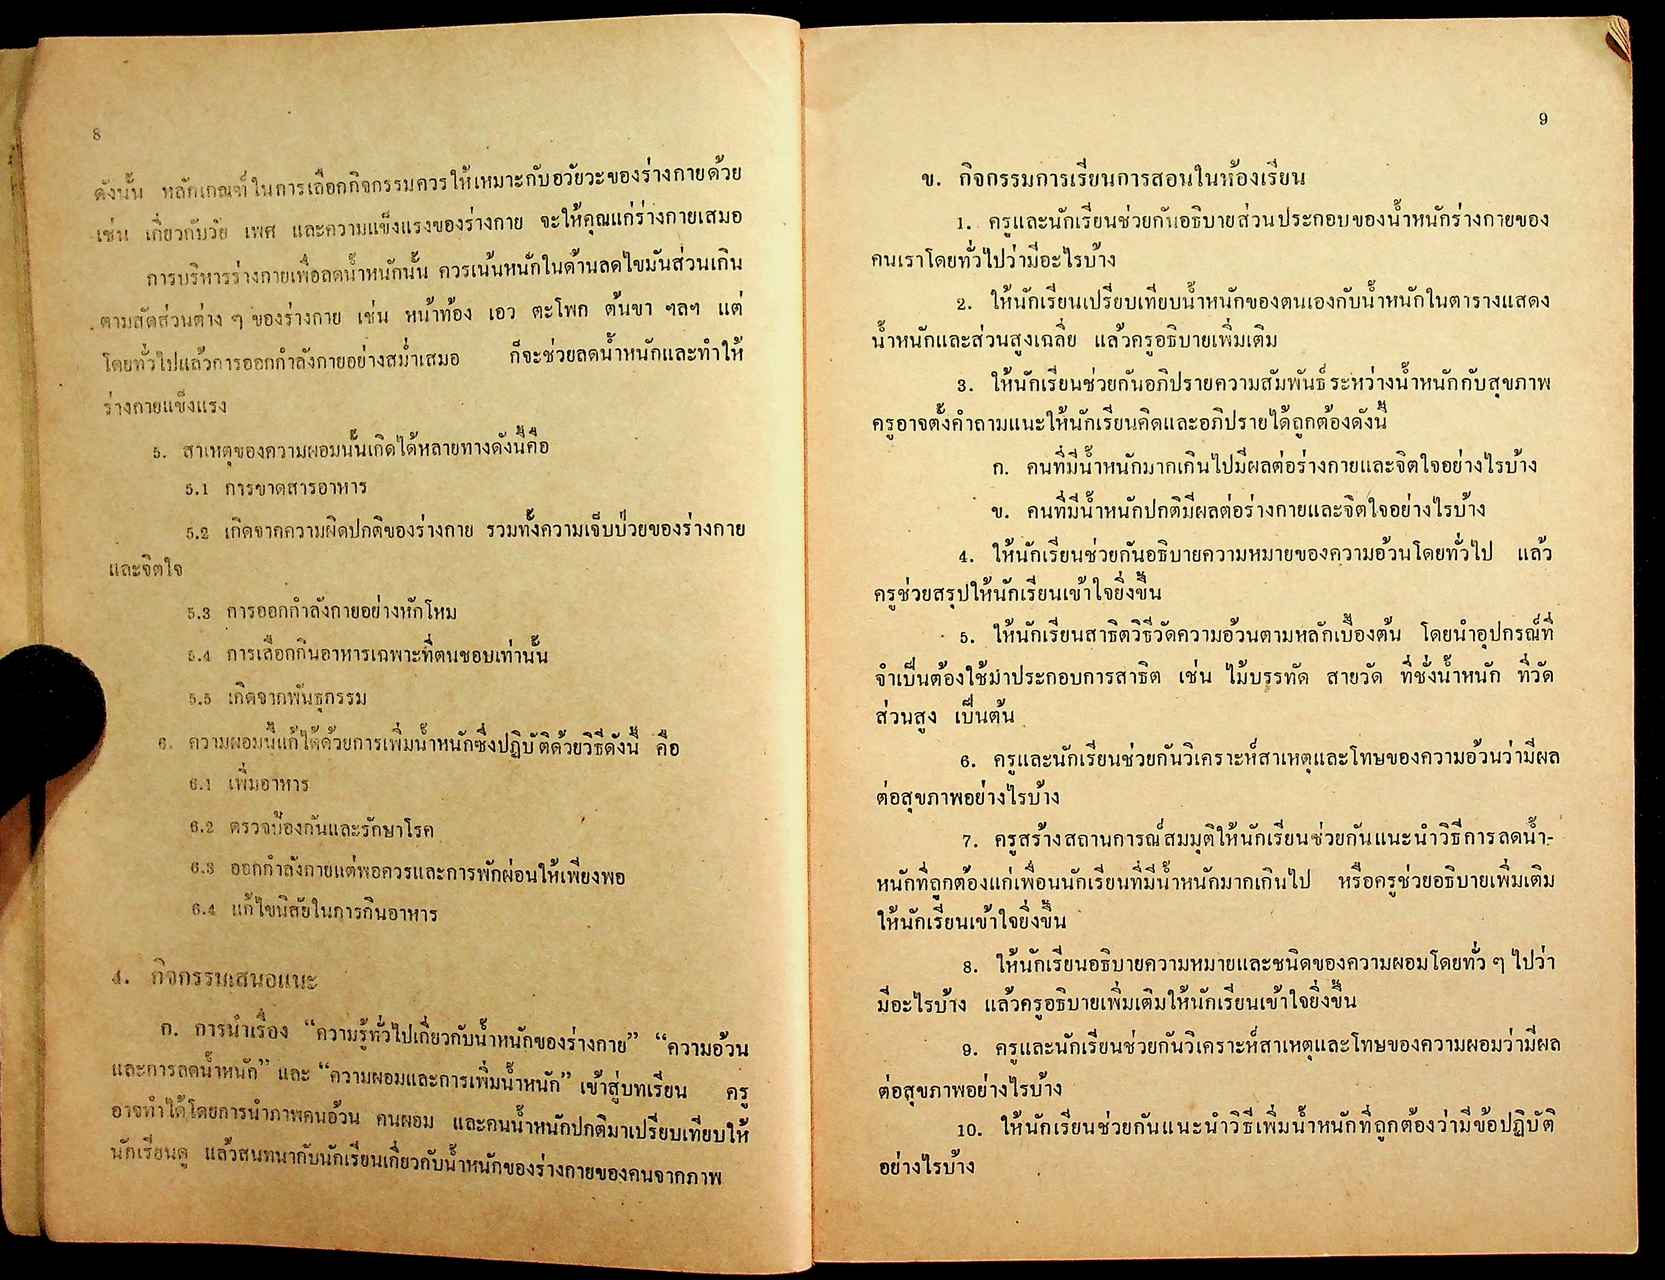 8
ดังนั้น หลักเกณฑ์ในการเลือกกิจกรรมควรให้เหมาะกับอวัยวะของร่างกายด้วย
เช่น เกี่ยวกับวัย เพศ และความแข็งแรงของร่างกาย จะให้คุณแก่ร่างกายเสมอ
การบริหารร่างกายเพื่อลดน้ำหนักนั้น ควรเน้นหนักในด้านลดไขมันส่วนเกิน
ตามสัดส่วนต่าง ๆ ของร่างกาย เช่น หน้าท้อง เอว ตะโพก ต้นขา ฯลฯ แต่
โดยทั่วไปแล้วการออกกำลังกายอย่างสม่ำเสมอ ก็จะช่วยลดน้ำหนักและทำให้
ร่างกายแข็งแรง
5. สาเหตุของความผอมนั้นเกิดได้หลายทางดังนี้คือ
5.1 การขาดสารอาหาร
5.2 เกิดจากความผิดปกติของร่างกาย รวมทั้งความเจ็บป่วยของร่างกาย
และจิตใจ
5.3 การออกกำลังกายอย่างหักโหม
5.4 การเลือกกินอาหารเฉพาะที่ตนชอบเท่านั้น
5.5 เกิดจากพันธุกรรม
6. ความผอมนี้แก้ได้ด้วยการเพิ่มน้ำหนักซึ่งปฏิบัติด้วยวิธีดังนี้ คือ
6.1 เพิ่มอาหาร
6.2 ตรวจป้องกันและรักษาโรค
6.3 ออกกำลังกายแต่พอควรและการพักผ่อนให้เพียงพอ
6.4 แก้ไขนิสัยในการกินอาหาร
4. กิจกรรมเสนอแนะ
ก. การนำเรื่อง “ความรู้ทั่วไปเกี่ยวกับน้ำหนักของร่างกาย” “ความอ้วน
และการลดน้ำหนัก” และ “ความผอมและการเพิ่มน้ำหนัก” เข้าสู่บทเรียน ครู
อาจทำได้โดยการนำภาพคนอ้วน คนผอม และคนน้ำหนักปกติมาเปรียบเทียบให้
นักเรียนดู แล้วสนทนากับนักเรียนเกี่ยวกับน้ำหนักของร่างกายของคนจากภาพ
9
ข. กิจกรรมการเรียนการสอนในห้องเรียน
1. ครูและนักเรียนช่วยกันอธิบายส่วนประกอบของน้ำหนักร่างกายของ
คนเราโดยทั่วไปว่ามีอะไรบ้าง
2. ให้นักเรียนเปรียบเทียบน้ำหนักของตนเองกับน้ำหนักในตารางแสดง
น้ำหนักและส่วนสูงเฉลี่ย แล้วครูอธิบายเพิ่มเติม
3. ให้นักเรียนช่วยกันอภิปรายความสัมพันธ์ระหว่างน้ำหนักกับสุขภาพ
ครูอาจตั้งคำถามแนะให้นักเรียนคิดและอภิปรายได้ถูกต้องดังนี้
ก. คนที่มีน้ำหนักมากเกินไปมีผลต่อร่างกายและจิตใจอย่างไรบ้าง
ข. คนที่มีน้ำหนักปกติมีผลต่อร่างกายและจิตใจอย่างไรบ้าง
4. ให้นักเรียนช่วยกันอธิบายความหมายของความอ้วนโดยทั่วไป แล้ว
ครูช่วยสรุปให้นักเรียนเข้าใจยิ่งขึ้น
5. ให้นักเรียนสาธิตวิธีวัดความอ้วนตามหลักเบื้องต้น โดยนำอุปกรณ์ที่
จำเป็นต้องใช้มาประกอบการสาธิต เช่น ไม้บรรทัด สายวัด ที่ชั่งน้ำหนัก ที่วัด
ส่วนสูง เป็นต้น
6. ครูและนักเรียนช่วยกันวิเคราะห์สาเหตุและโทษของความอ้วนว่ามีผล
ต่อสุขภาพอย่างไรบ้าง
7. ครูสร้างสถานการณ์สมมุติให้นักเรียนช่วยกันแนะนำวิธีการลดน้ำ-
หนักที่ถูกต้องแก่เพื่อนนักเรียนที่มีน้ำหนักมากเกินไป หรือครูช่วยอธิบายเพิ่มเติม
ให้นักเรียนเข้าใจยิ่งขึ้น
8. ให้นักเรียนอธิบายความหมายและชนิดของความผอมโดยทั่ว ๆ ไปว่า
มีอะไรบ้าง แล้วครูอธิบายเพิ่มเติมให้นักเรียนเข้าใจยิ่งขึ้น
9. ครูและนักเรียนช่วยกันวิเคราะห์สาเหตุและโทษของความผอมว่ามีผล
ต่อสุขภาพอย่างไรบ้าง
10. ให้นักเรียนช่วยกันแนะนำวิธีเพิ่มน้ำหนักที่ถูกต้องว่ามีข้อปฏิบัติ
อย่างไรบ้าง